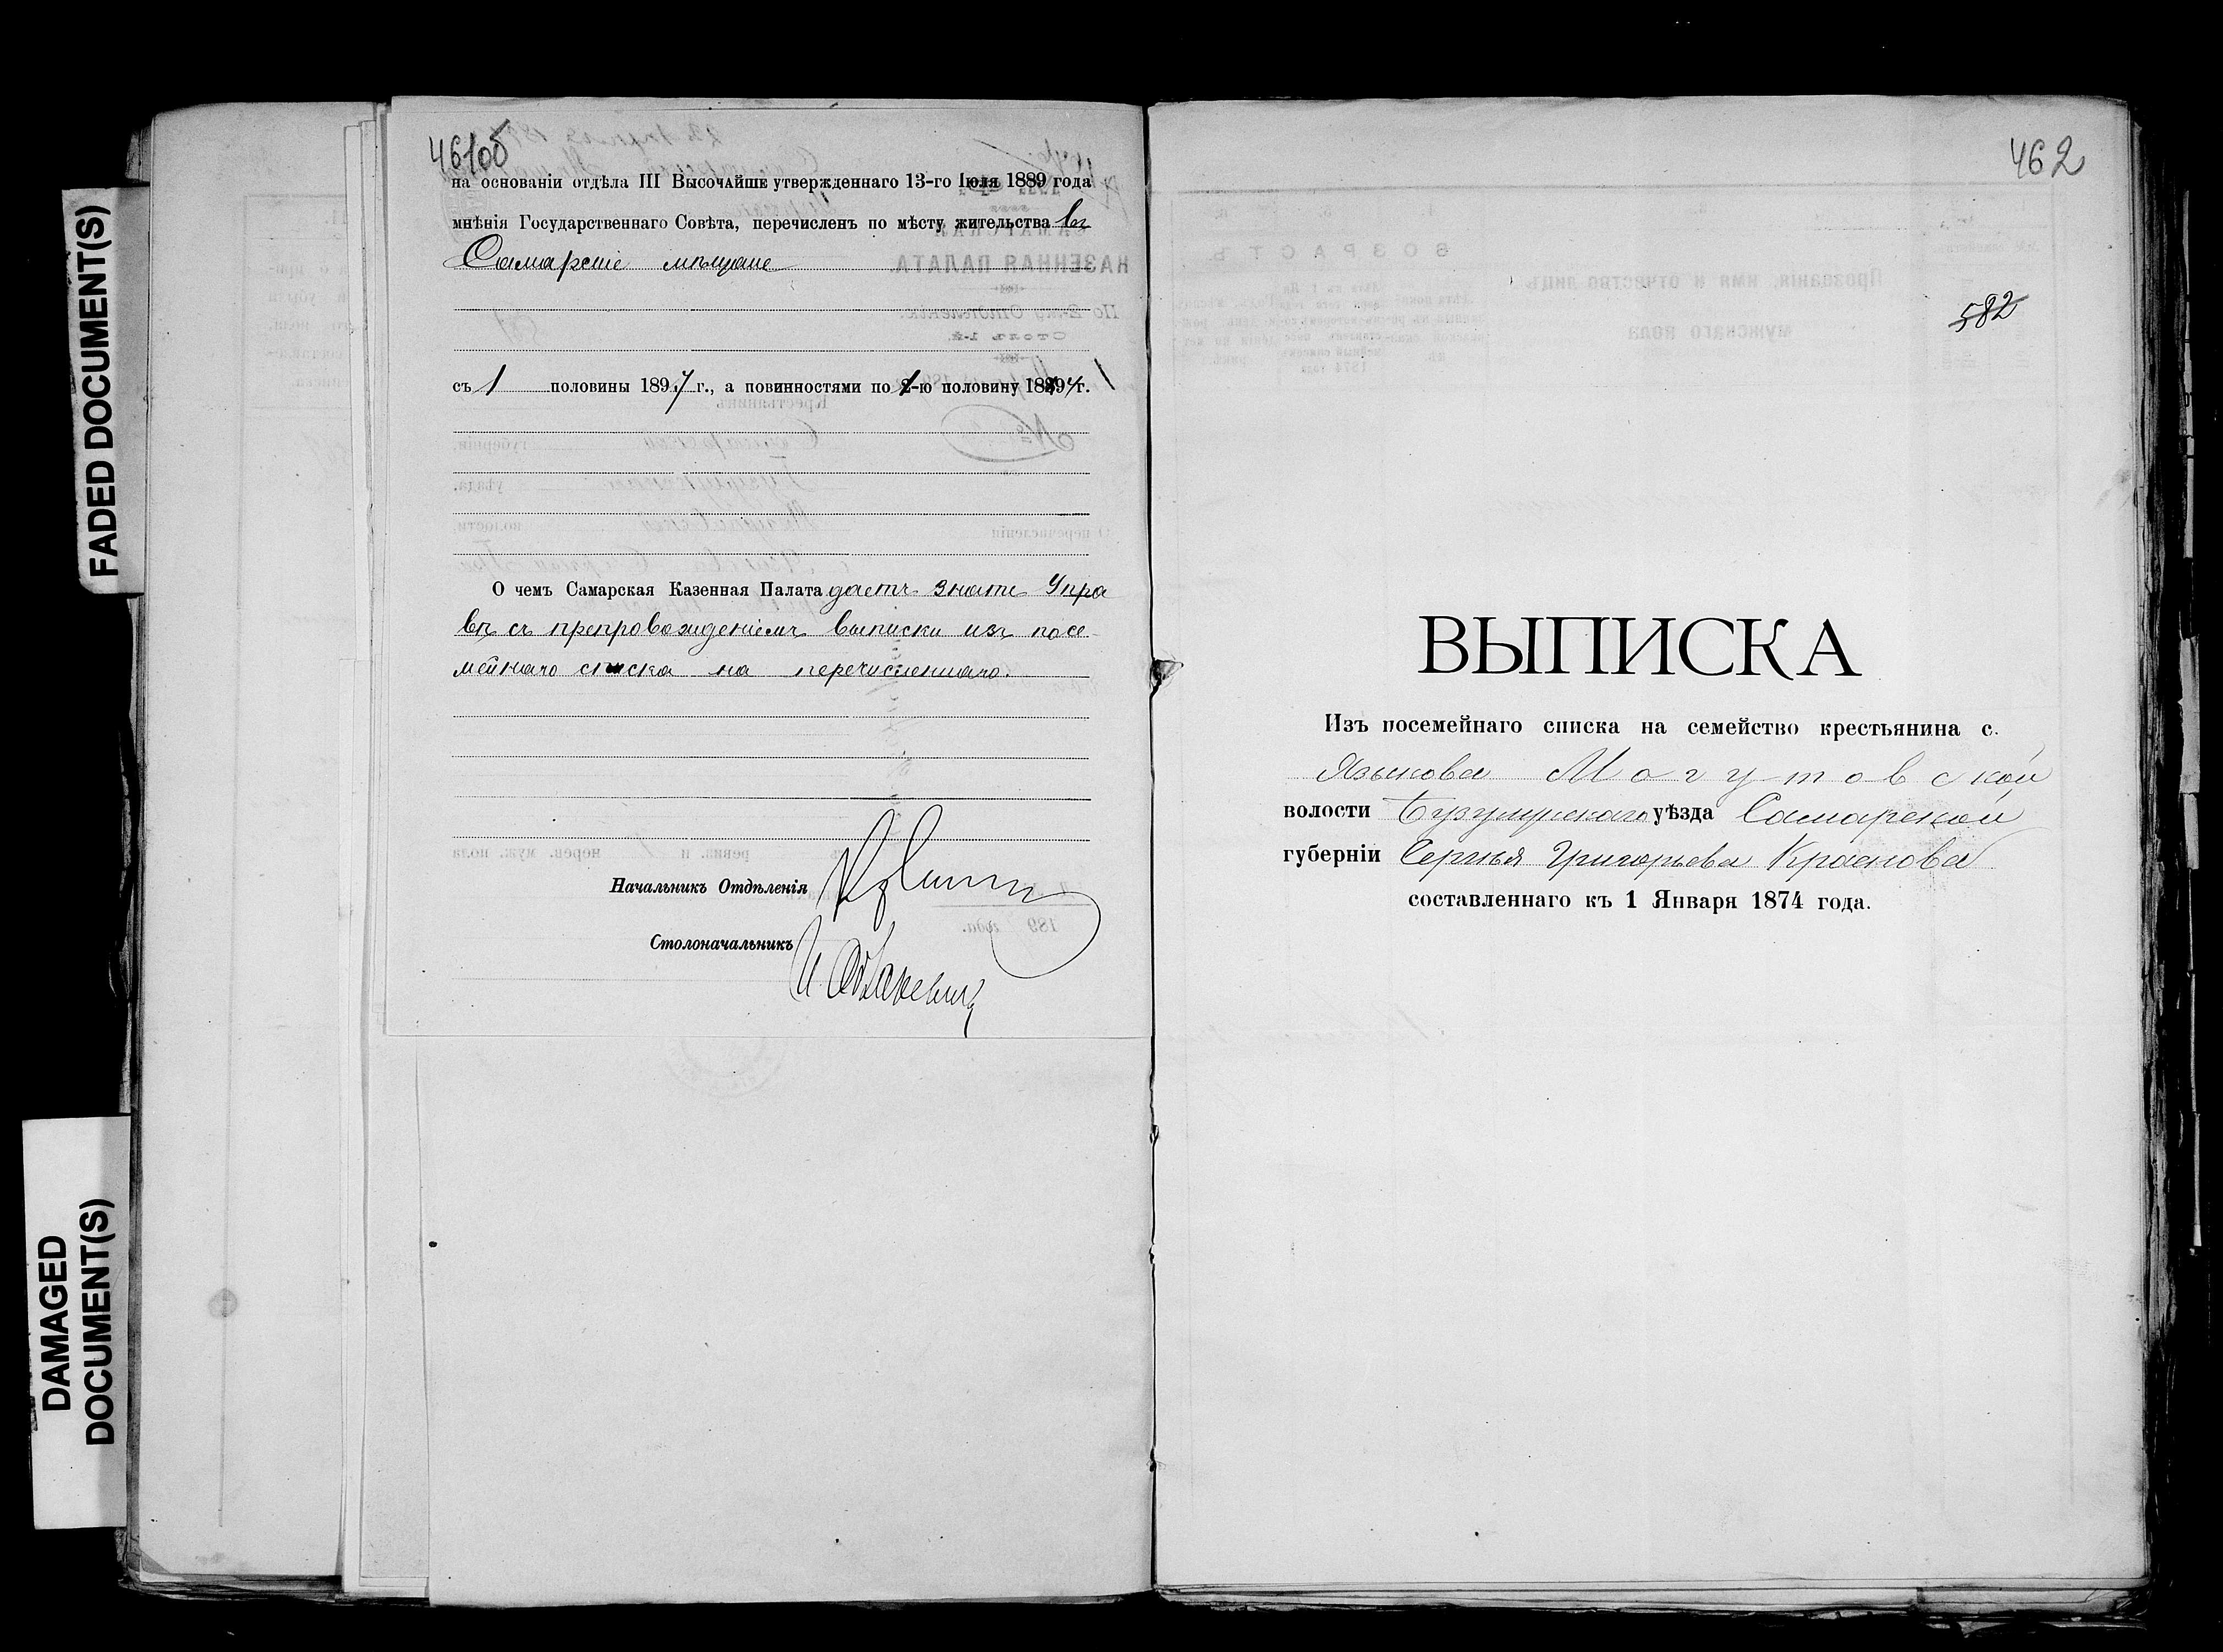 FADED DOCUMENT(S)
DAMAGED
DOCUMENT(S)
на основаніи отдѣла III Высочайше утвержденнаго 13-го Іюля 1889 года
мнѣнія Государственнаго Совѣта, перечисленъ по мѣсту жительства въ
Самарскіе мѣщане
съ 1 половины 1897 г., а повинностями по 1-ю половину 1897 г.
О чемъ Самарская Казенная Палата даетъ знать Упра
вѣ съ препровожденіемъ выписки изъ посе-
мейнаго списка на перечисленнаго.
Начальникъ Отдѣленія
Столоначальникъ
462
582
ВЫПИСКА
Изъ посемейнаго списка на семейство крестьянина с.
Языкова Могутовской
волости Бузулукскаго уѣзда Самарской
губерніи Сергѣя Григорьева Краснова
составленнаго къ 1 Января 1874 года.